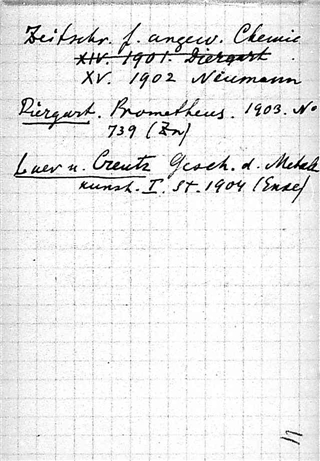 Zeitschr. f. angew. Chemie
XIV. 1901. Diergart
XV. 1902 Neumann
Diergart. Prometheus. 1903. No
739 (Zn)
Luer u. Creutz Gesch. d. Metall
kunst. I. St. 1904 (Erze)
11